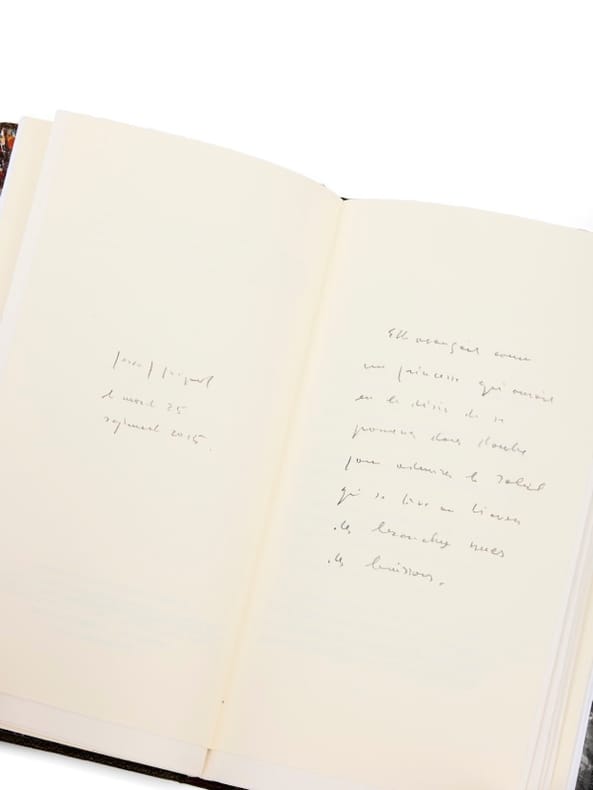 pascal quignard
le mardi
septembre 2015.
Elle avançait comme
une princesse qui aurait
eu le désir de se
promener dans l'aube
pour admirer le soleil
qui se lève au travers
des branches nues
des buissons.